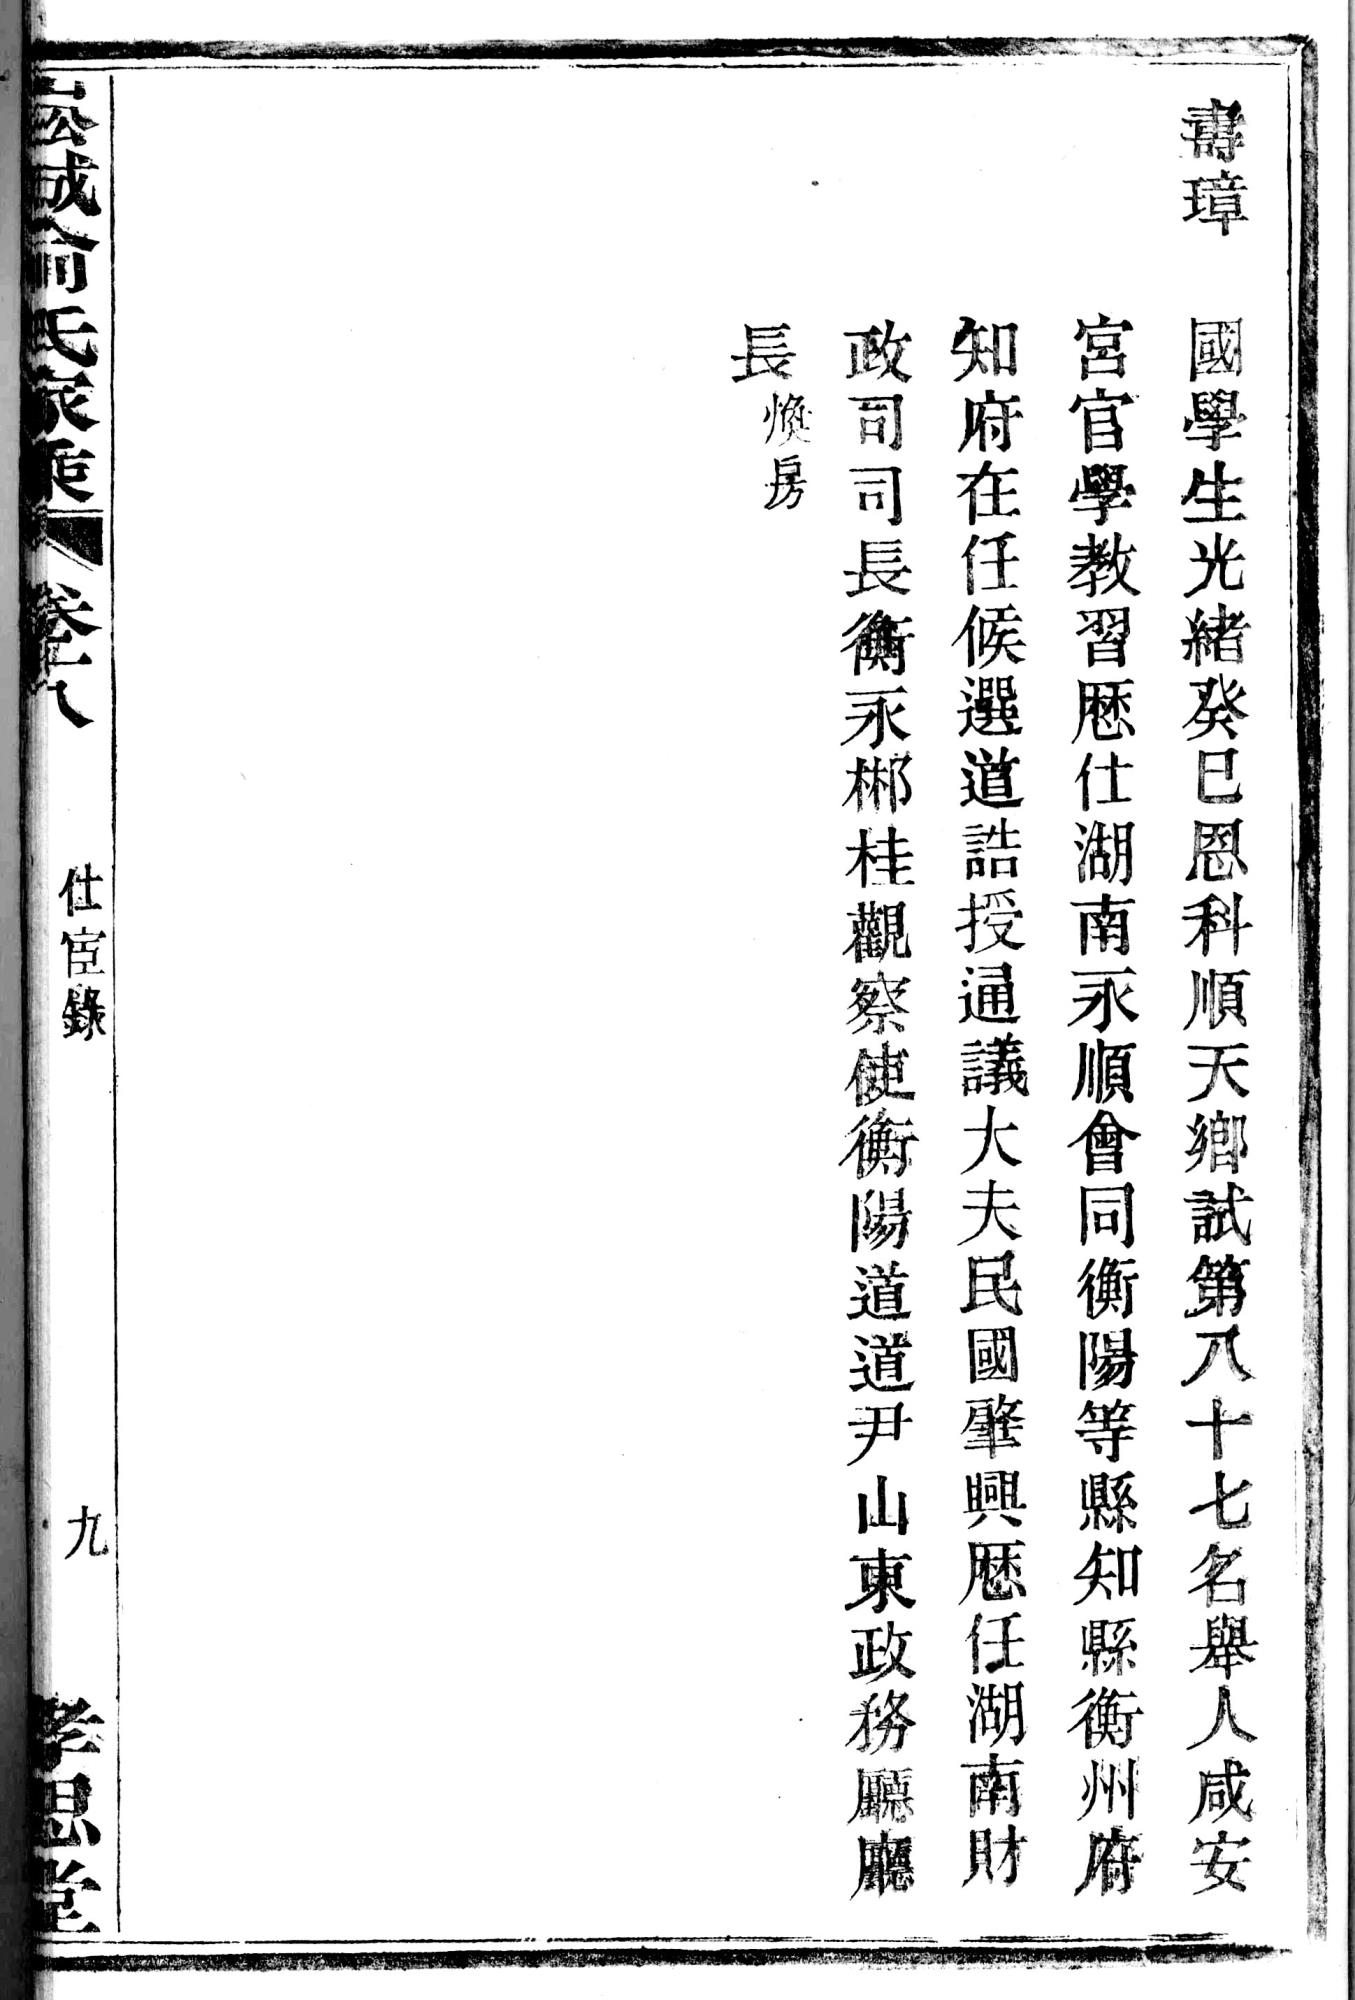 壽璋
國學生光緒癸巳恩科順天鄉試第八十七名舉人咸安
宮官學教習歷仕湖南永順會同衡陽等縣知縣衡州府
知府在任候選道誥授通議大夫民國肇興歷任湖南財
政司司長衡永郴桂觀察使衡陽道道尹山東政務廳廳
長煥房
崧城俞氏家乘 卷十八 仕宦錄 九 孝思堂